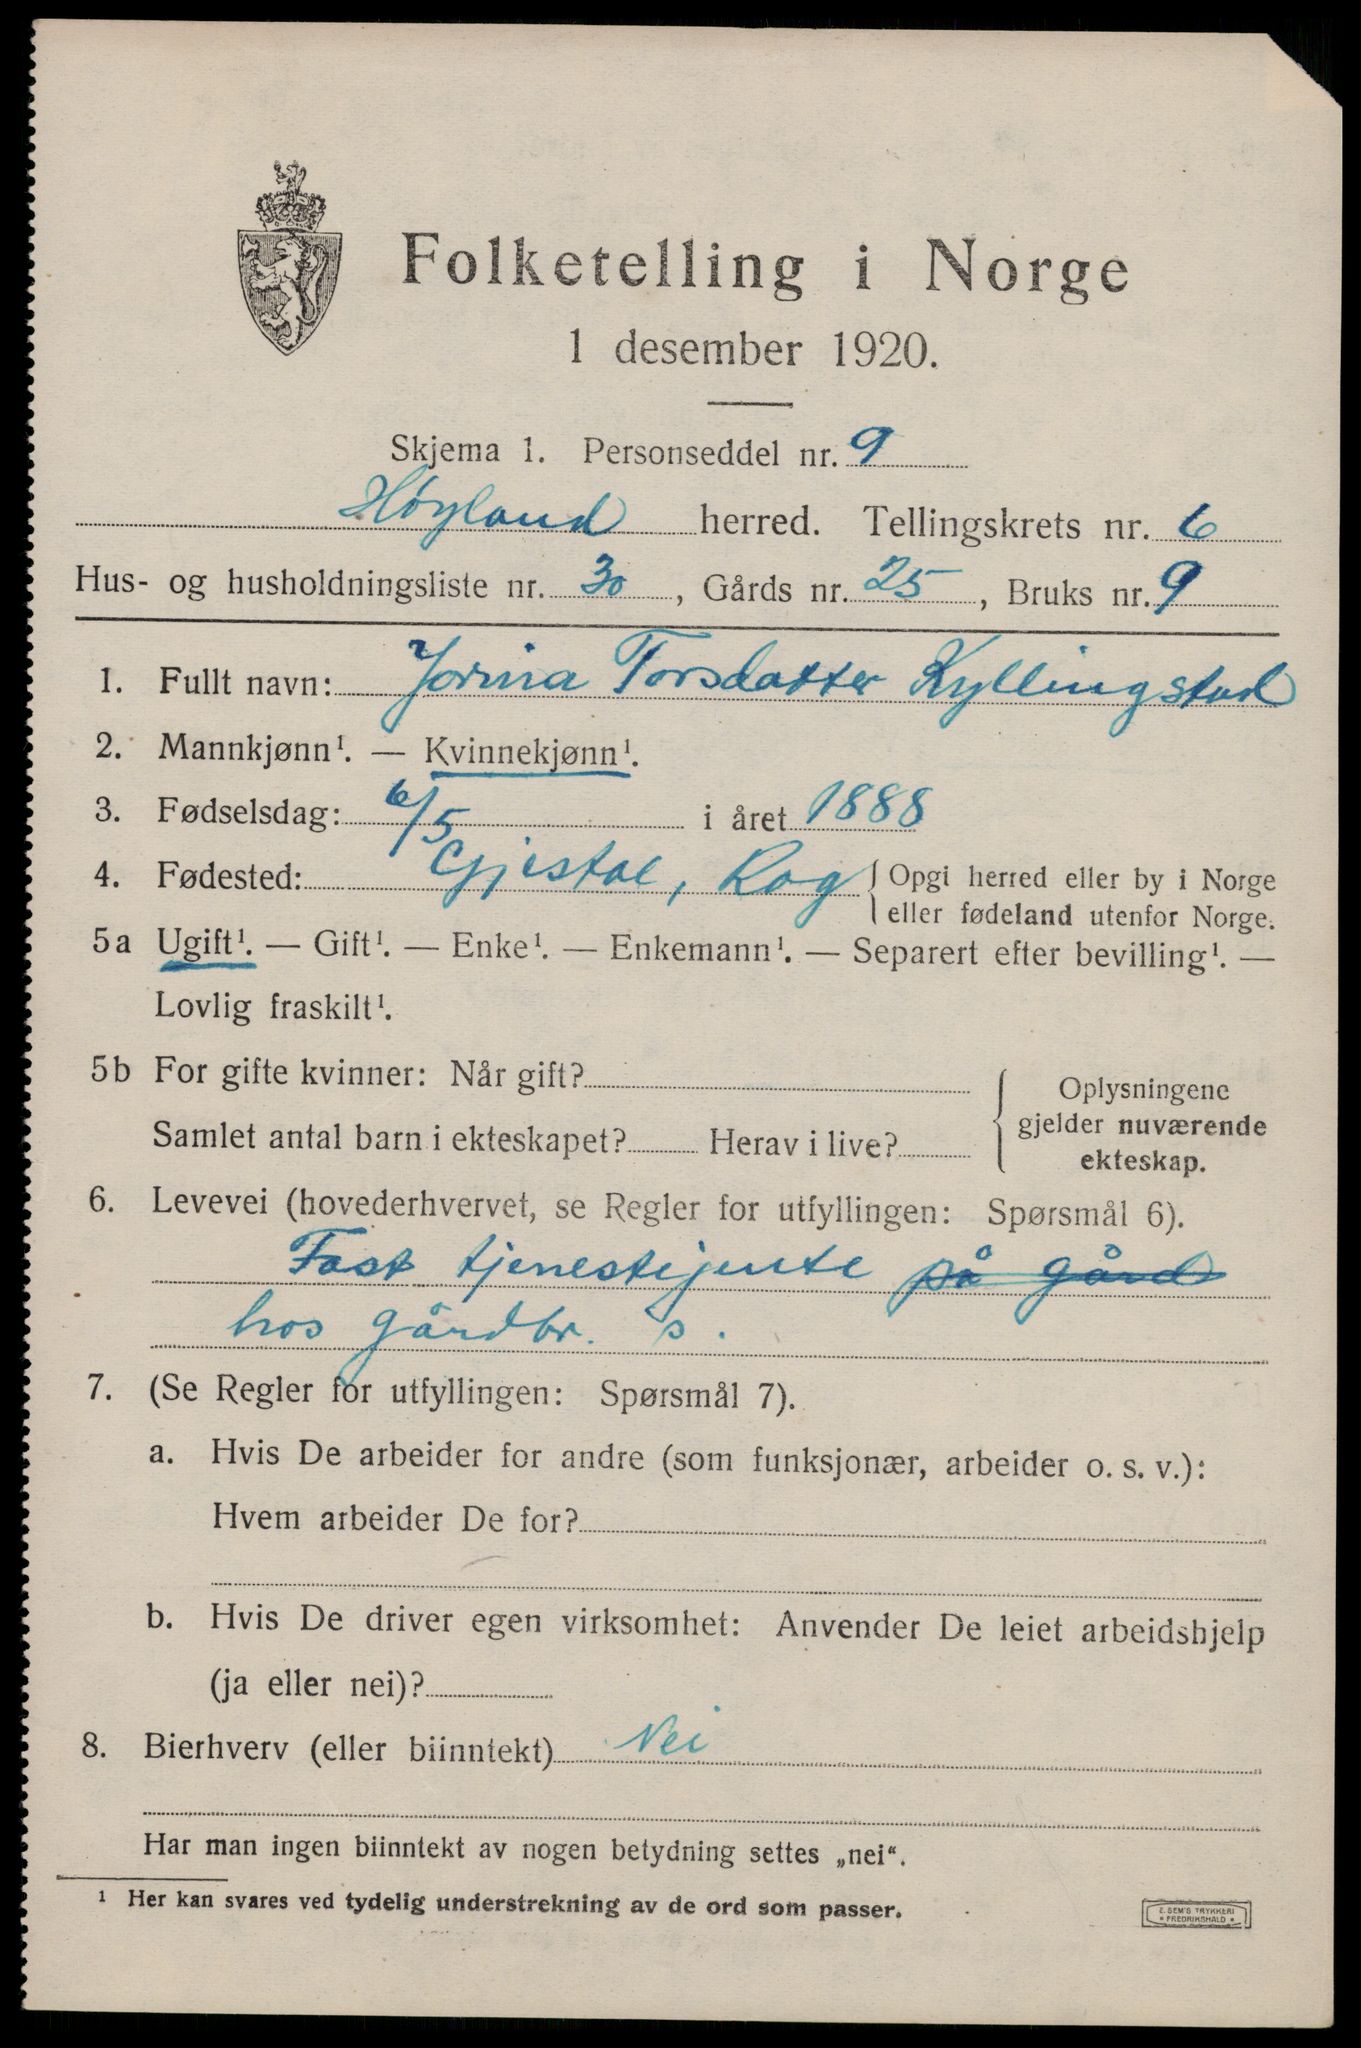 Folketelling i Norge
1 desember 1920.
Skjema 1. Personseddel nr. 9
Høyland herred. Tellingskrets nr. 6
Hus- og husholdningsliste nr. 30, Gårds nr. 25, Bruks nr. 9
1. Fullt navn: Jorina Torsdatter Kyllingstad
2. Mannkjønn¹. — Kvinnekjønn¹.
3. Fødselsdag: 6/5 i året 1888
4. Fødested: Gjestal, Rog { Opgi herred eller by i Norge
eller fødeland utenfor Norge.
5a Ugift¹. — Gift¹. — Enke¹. — Enkemann¹. — Separert efter bevilling¹. —
Lovlig fraskilt¹.
5b For gifte kvinner: Når gift?
Samlet antal barn i ekteskapet? Herav i live?
Oplysningene
gjelder nuværende
ekteskap.
6. Levevei (hovederhvervet, se Regler for utfyllingen: Spørsmål 6).
Fast tjenestejente på gård
hos gårdbr. s.
7. (Se Regler for utfyllingen: Spørsmål 7).
a. Hvis De arbeider for andre (som funksjonær, arbeider o. s. v.):
Hvem arbeider De for?
b. Hvis De driver egen virksomhet: Anvender De leiet arbeidshjelp
(ja eller nei)?
8. Bierhverv (eller biinntekt) Nei
Har man ingen biinntekt av nogen betydning settes „nei“.
¹ Her kan svares ved tydelig understrekning av de ord som passer.
E. SEM'S TRYKKERI
• FREDRIKSHALD •